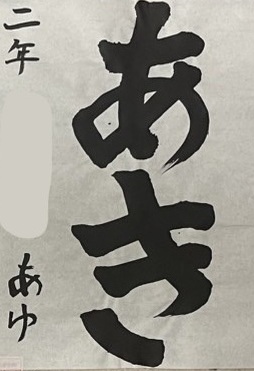 あき
二年
あゆ